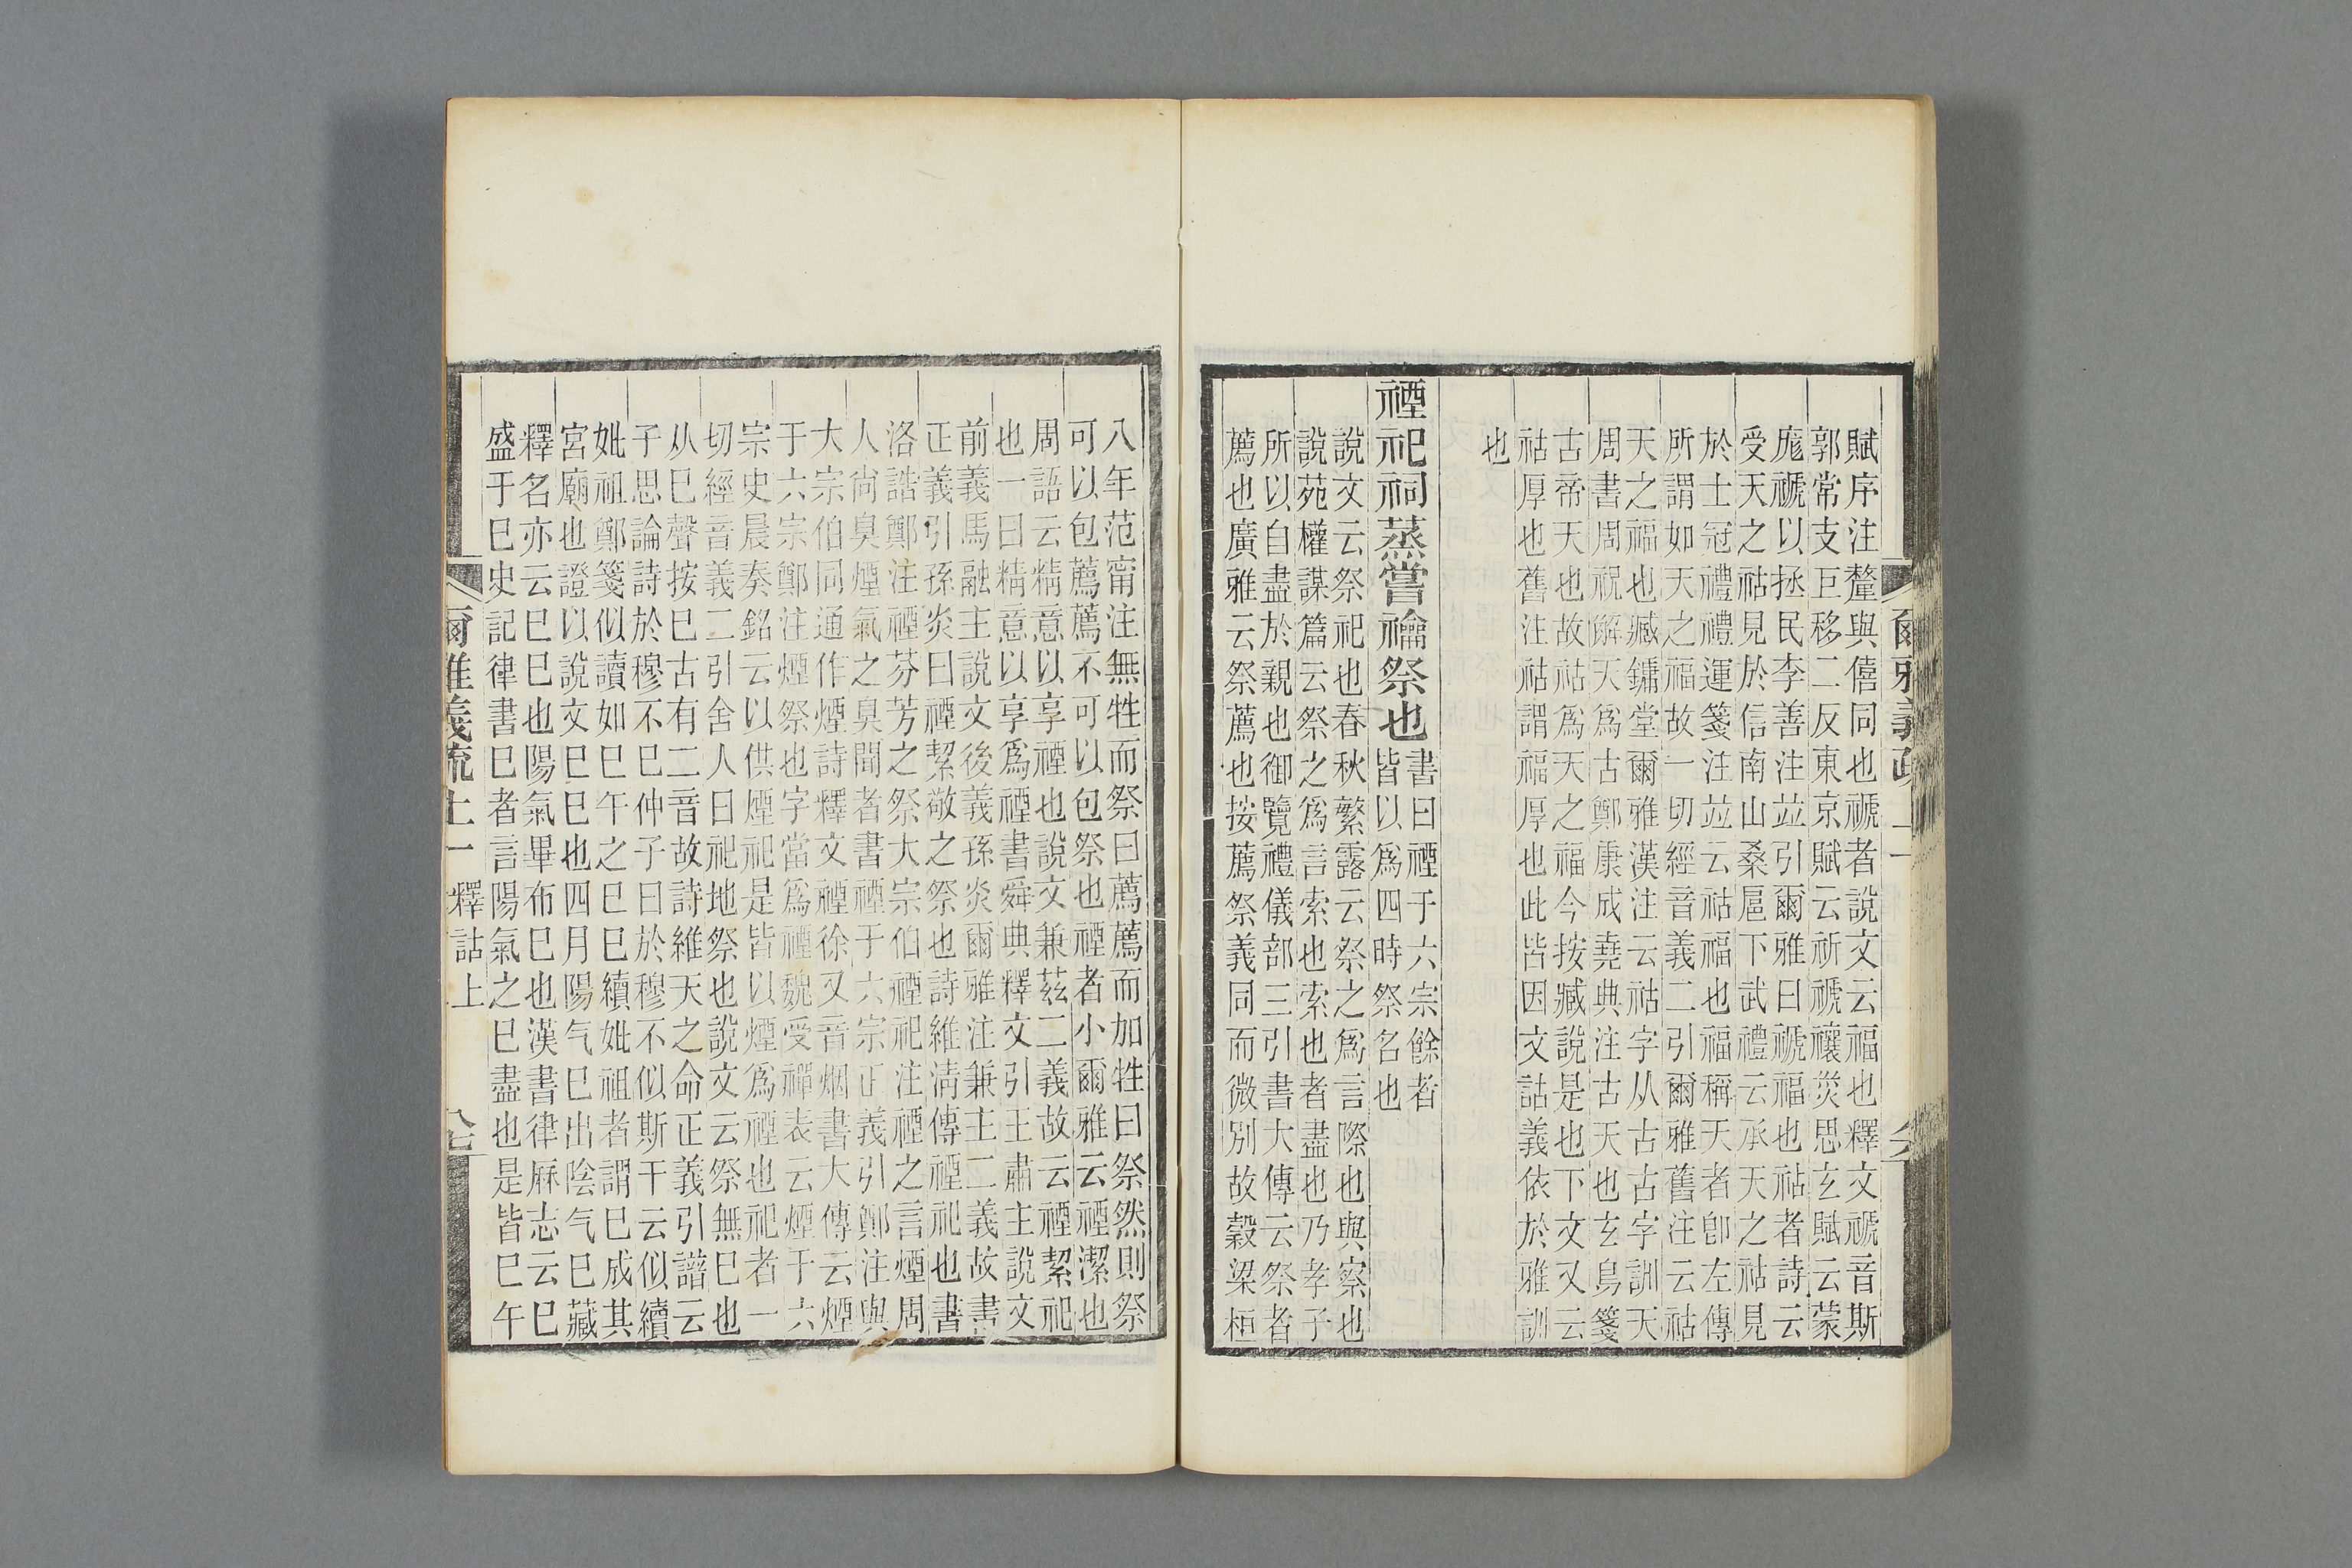 賦序注釐與僖同也禠者說文云福也釋文禠音斯
郭常支巨移二反東京賦云祈禠禳災思玄賦云蒙
庬禠以拯民李善注竝引爾雅曰禠福也祜者詩云
受天之祜見於信南山桑扈下武禮云承天之祜見
於士冠禮禮運箋注竝云祜福也福稱天者卽左傳
所謂如天之福故一切經音義二引爾雅舊注云祜
天之福也臧鏞堂爾雅漢注云祜字从古古字訓天
周書周祝解天爲古鄭康成堯典注古天也玄鳥箋
古帝天也故祜爲天之福今按臧說是也下文又云
祜厚也舊注祜謂福厚也此皆因文詁義依於雅訓
也
禋祀祠蒸嘗禴祭也
書曰禋于六宗餘者
皆以爲四時祭名也
說文云祭祀也春秋繁露云祭之爲言際也與察也
說苑權謀篇云祭之爲言索也索也者盡也乃孝子
所以自盡於親也御覽禮儀部三引書大傳云祭者
薦也廣雅云祭薦也按薦祭義同而微別故穀梁桓
爾雅義疏 上一
八年范甯注無牲而祭曰薦薦而加牲曰祭然則祭
可以包薦薦不可以包祭也禋者小爾雅云禋潔也
周語云精意以享禋也說文兼茲二義故云禋絜祀
也一曰精意以享爲禋書舜典釋文引王肅主說文
前義馬融主說文後義孫炎爾雅注兼主二義故書
正義引孫炎曰禋絜敬之祭也詩維淸傳禋祀也書
洛誥鄭注禋芬芳之祭大宗伯禋祀注禋之言煙周
人尙臭煙氣之臭聞者書禋于六宗正義引鄭注與
大宗伯同通作煙詩釋文禋徐又音烟書大傳云煙
于六宗鄭注煙祭也字當爲禋魏受禪表云煙于六
宗史晨奏銘云以供煙祀是皆以煙爲禋也祀者一
切經音義二引舍人曰祀地祭也說文云祭無巳也
从巳聲按巳古有二音故詩維天之命正義引譜云
子思論詩於穆不巳仲子曰於穆不似斯干云似續
妣祖鄭箋似讀如巳午之巳巳續妣祖者謂巳成其
宮廟也證以說文巳巳也四月陽气巳出陰气巳藏
釋名亦云巳巳也陽氣畢布巳也漢書律厤志云巳
盛于巳史記律書巳者言陽氣之巳盡也是皆巳午
爾雅義疏 上一 釋詁上